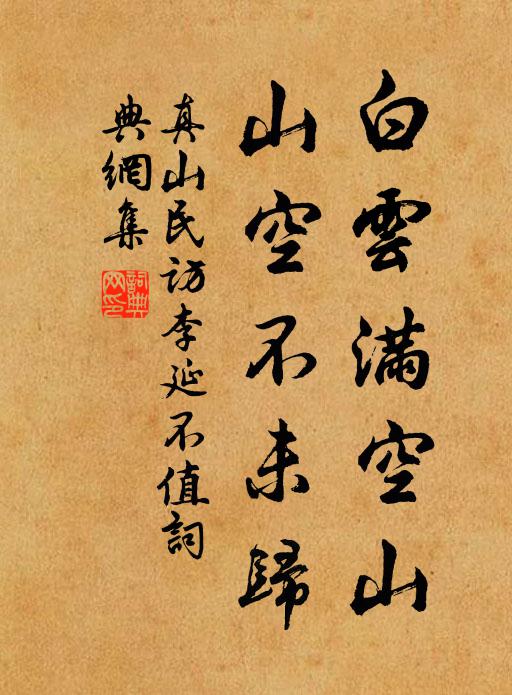 白雲滿空山
山空不未歸
真山民訪李延不值詞
典網集
詞典
网印